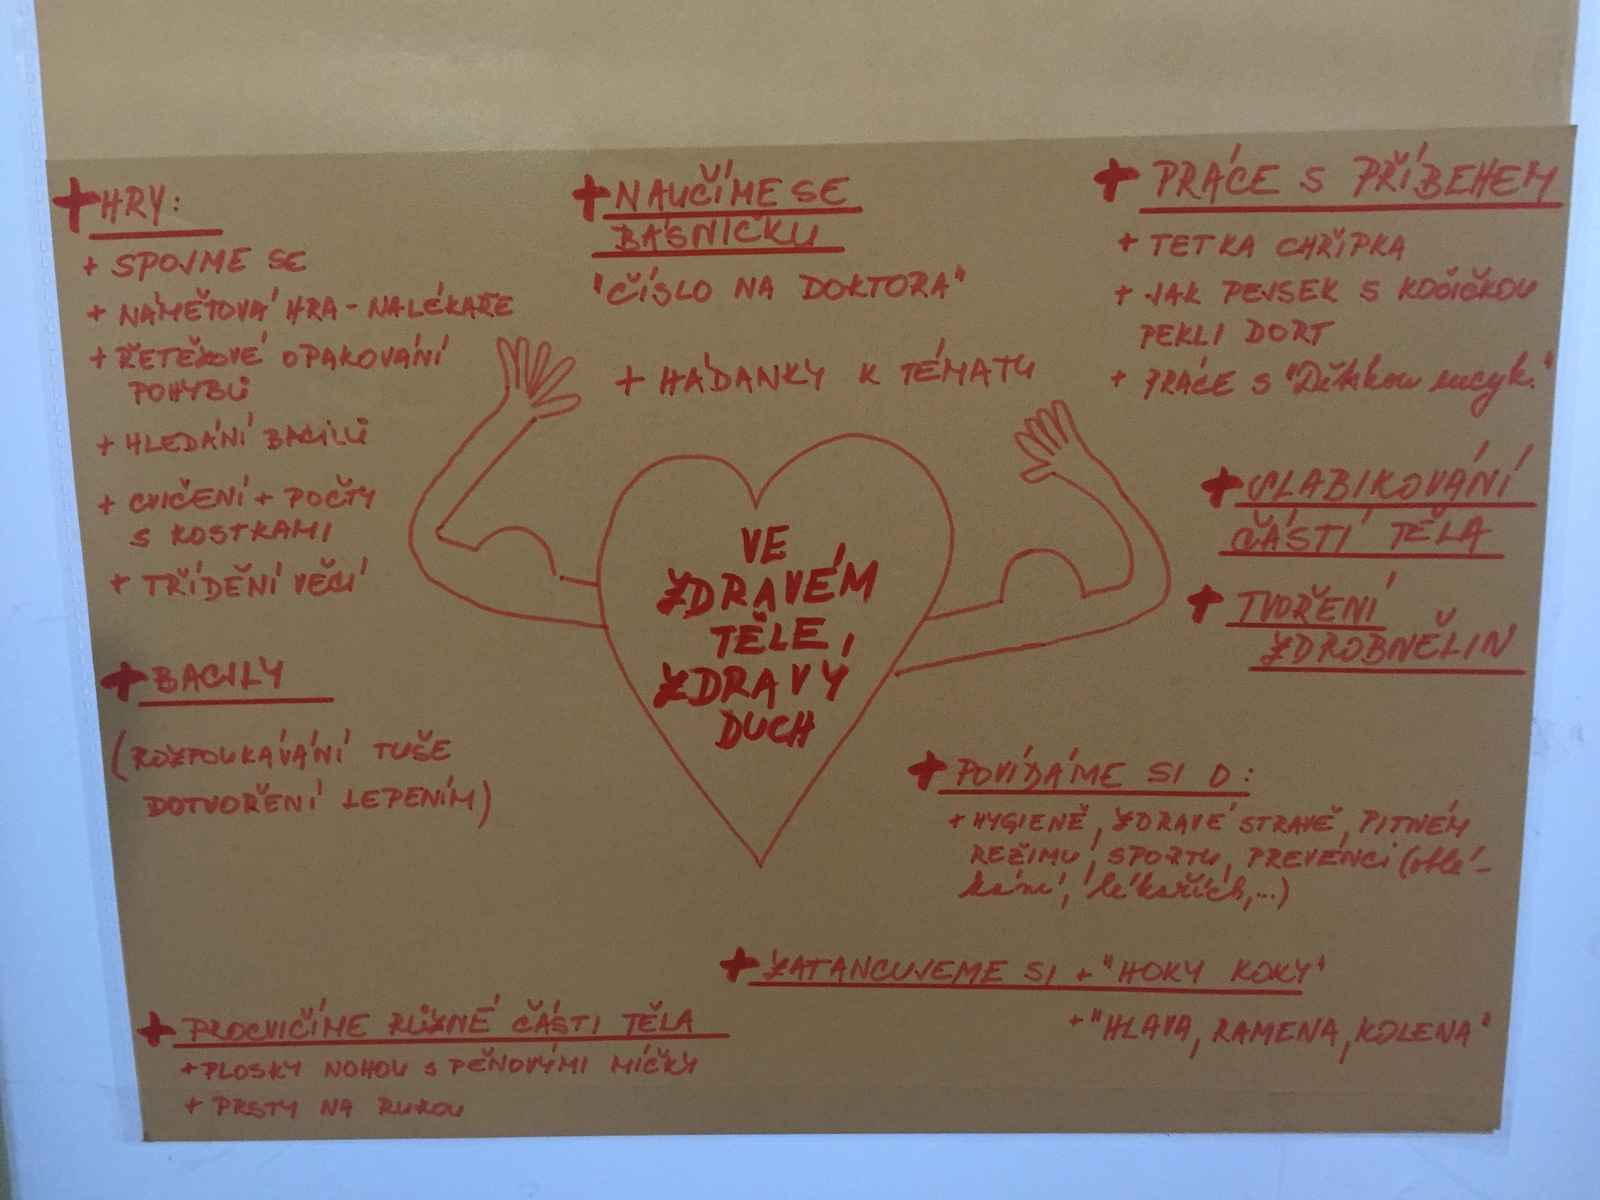 + HRY:
+ SPOJME SE
+ NÁMĚTOVÁ HRA - NA LÉKAŘE
+ ŘETEZOVÉ OPAKOVÁNÍ
POHYBŮ
+ HLEDÁNÍ BACILŮ
+ CVIČENÍ + POČTY
S KOSTKAMI
+ TŘÍDĚNÍ VĚCÍ
+ BACILY
(ROZFOUKÁVÁNÍ TUŠE
DOTVOŘENÍ LEPENÍM)
+ NAUČÍME SE
BÁSNIČKU
"ČÍSLO NA DOKTORA"
+ HÁDANKY K TÉMATU
VE
ZDRAVÉM
TĚLE,
ZDRAVÝ
DUCH
+ PRÁCE S PŘÍBEHEM
+ TETKA CHŘIPKA
+ JAK PEJSEK S KOČIČKOU
PEKLI DORT
+ PRÁCE S "Dětskou encyk."
+ SLABIKOVÁNÍ
ČÁSTÍ TĚLA
+ TVOŘENÍ
ZDROBNĚLIN
+ POVÍDÁME SI O:
+ HYGIENĚ, ZDRAVÉ STRAVĚ, PITNÉM
REŽIMU, SPORTU, PREVENCI (oblé-
kání, lékařích,...)
+ ZATANCUJEME SI + "HOKY KOKY"
+ "HLAVA, RAMENA, KOLENA"
+ PROCVIČÍME RŮZNÉ ČÁSTI TĚLA
+ PLOSKY NOHOU S PĚNOVÝMI MÍČKY
+ PRSTY NA RUKOU